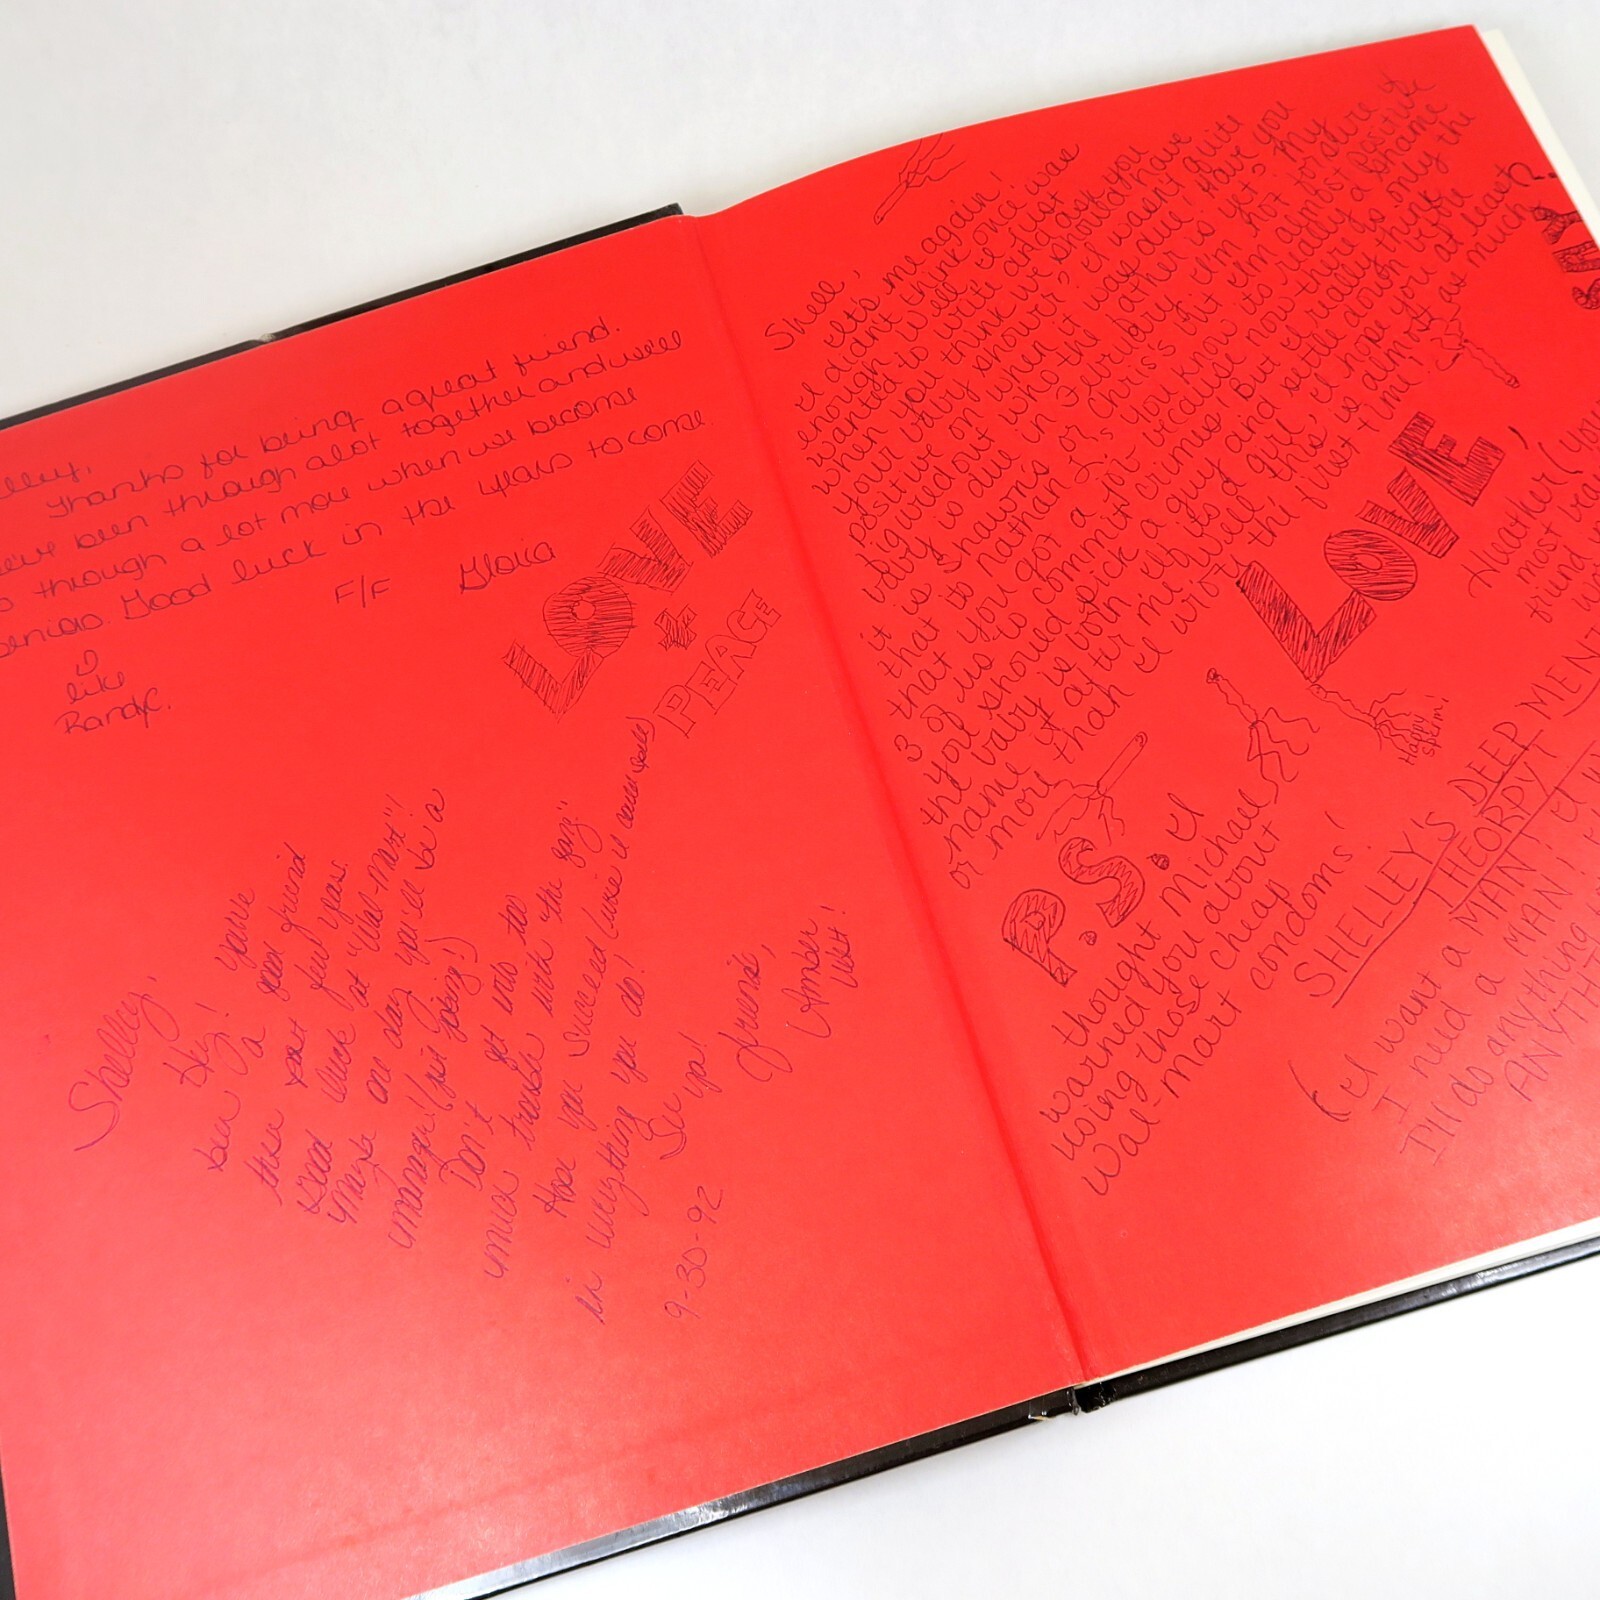 elley,
Thanks for being a great friend.
eve been through alot together and well
o through a lot more when we become
seniors. Good luck in the years to come.
F/F Gloria
like
Randy.
LOVE
+
PEACE
Shelley,
Hey! You've
been a good friend
these past few years.
Good luck at "Wal-Mart"!
Maybe one day you'll be a
manager! (just joking!)
Don't get into too
much trouble with "the gang."
Hope you succeed
in everything you do!
See ya!
Friends,
Amber
9-30-92
Shell,
It's me again!
I didn't think once was
enough. Well I just
wanted to write and ask you
when you think we should have
your baby shower, I wasn't quite
positive on when it was due! Have you
figured out who the father is yet? My
baby is due in February I'm not for sure if
it is Shawn's or Chris's but I'm almost positive
that its Nathan's, you know its really a shame
that you got a
3 of us to commit crimes. But
you should pick a guy and settle down if
the baby is both
name it after me
or more than I wrote the first time
SAY?
LOVE,
Heather (you
most
friend
Happy
sperm!
P.S. I
thought Michael
warned you about
using those cheap
Wal-mart condoms!
SHELLEY'S DEEP MENT
THEORPY
(I want a MAN
I need a MAN
I'll do anything
ANYTHI